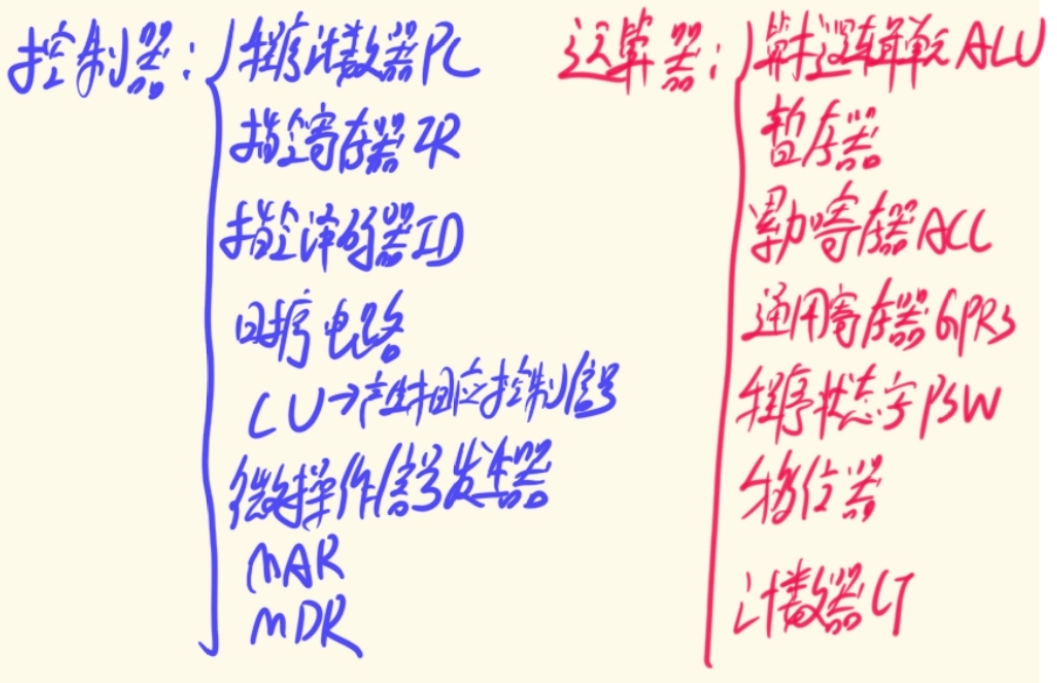 控制器:
程序计数器PC
指令寄存器IR
指令译码器ID
时序电路
CU→产生相应控制信号
微操作信号发生器
MAR
MDR
运算器:
算术逻辑单元ALU
暂存器
累加寄存器ACC
通用寄存器GPRs
程序状态字PSW
移位器
计数器CT